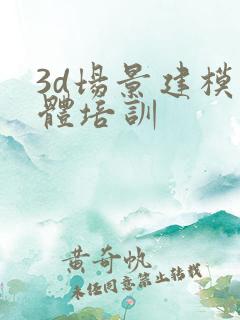 3d場景建模
體培訓
黄奇帆
未任同意禁止转载